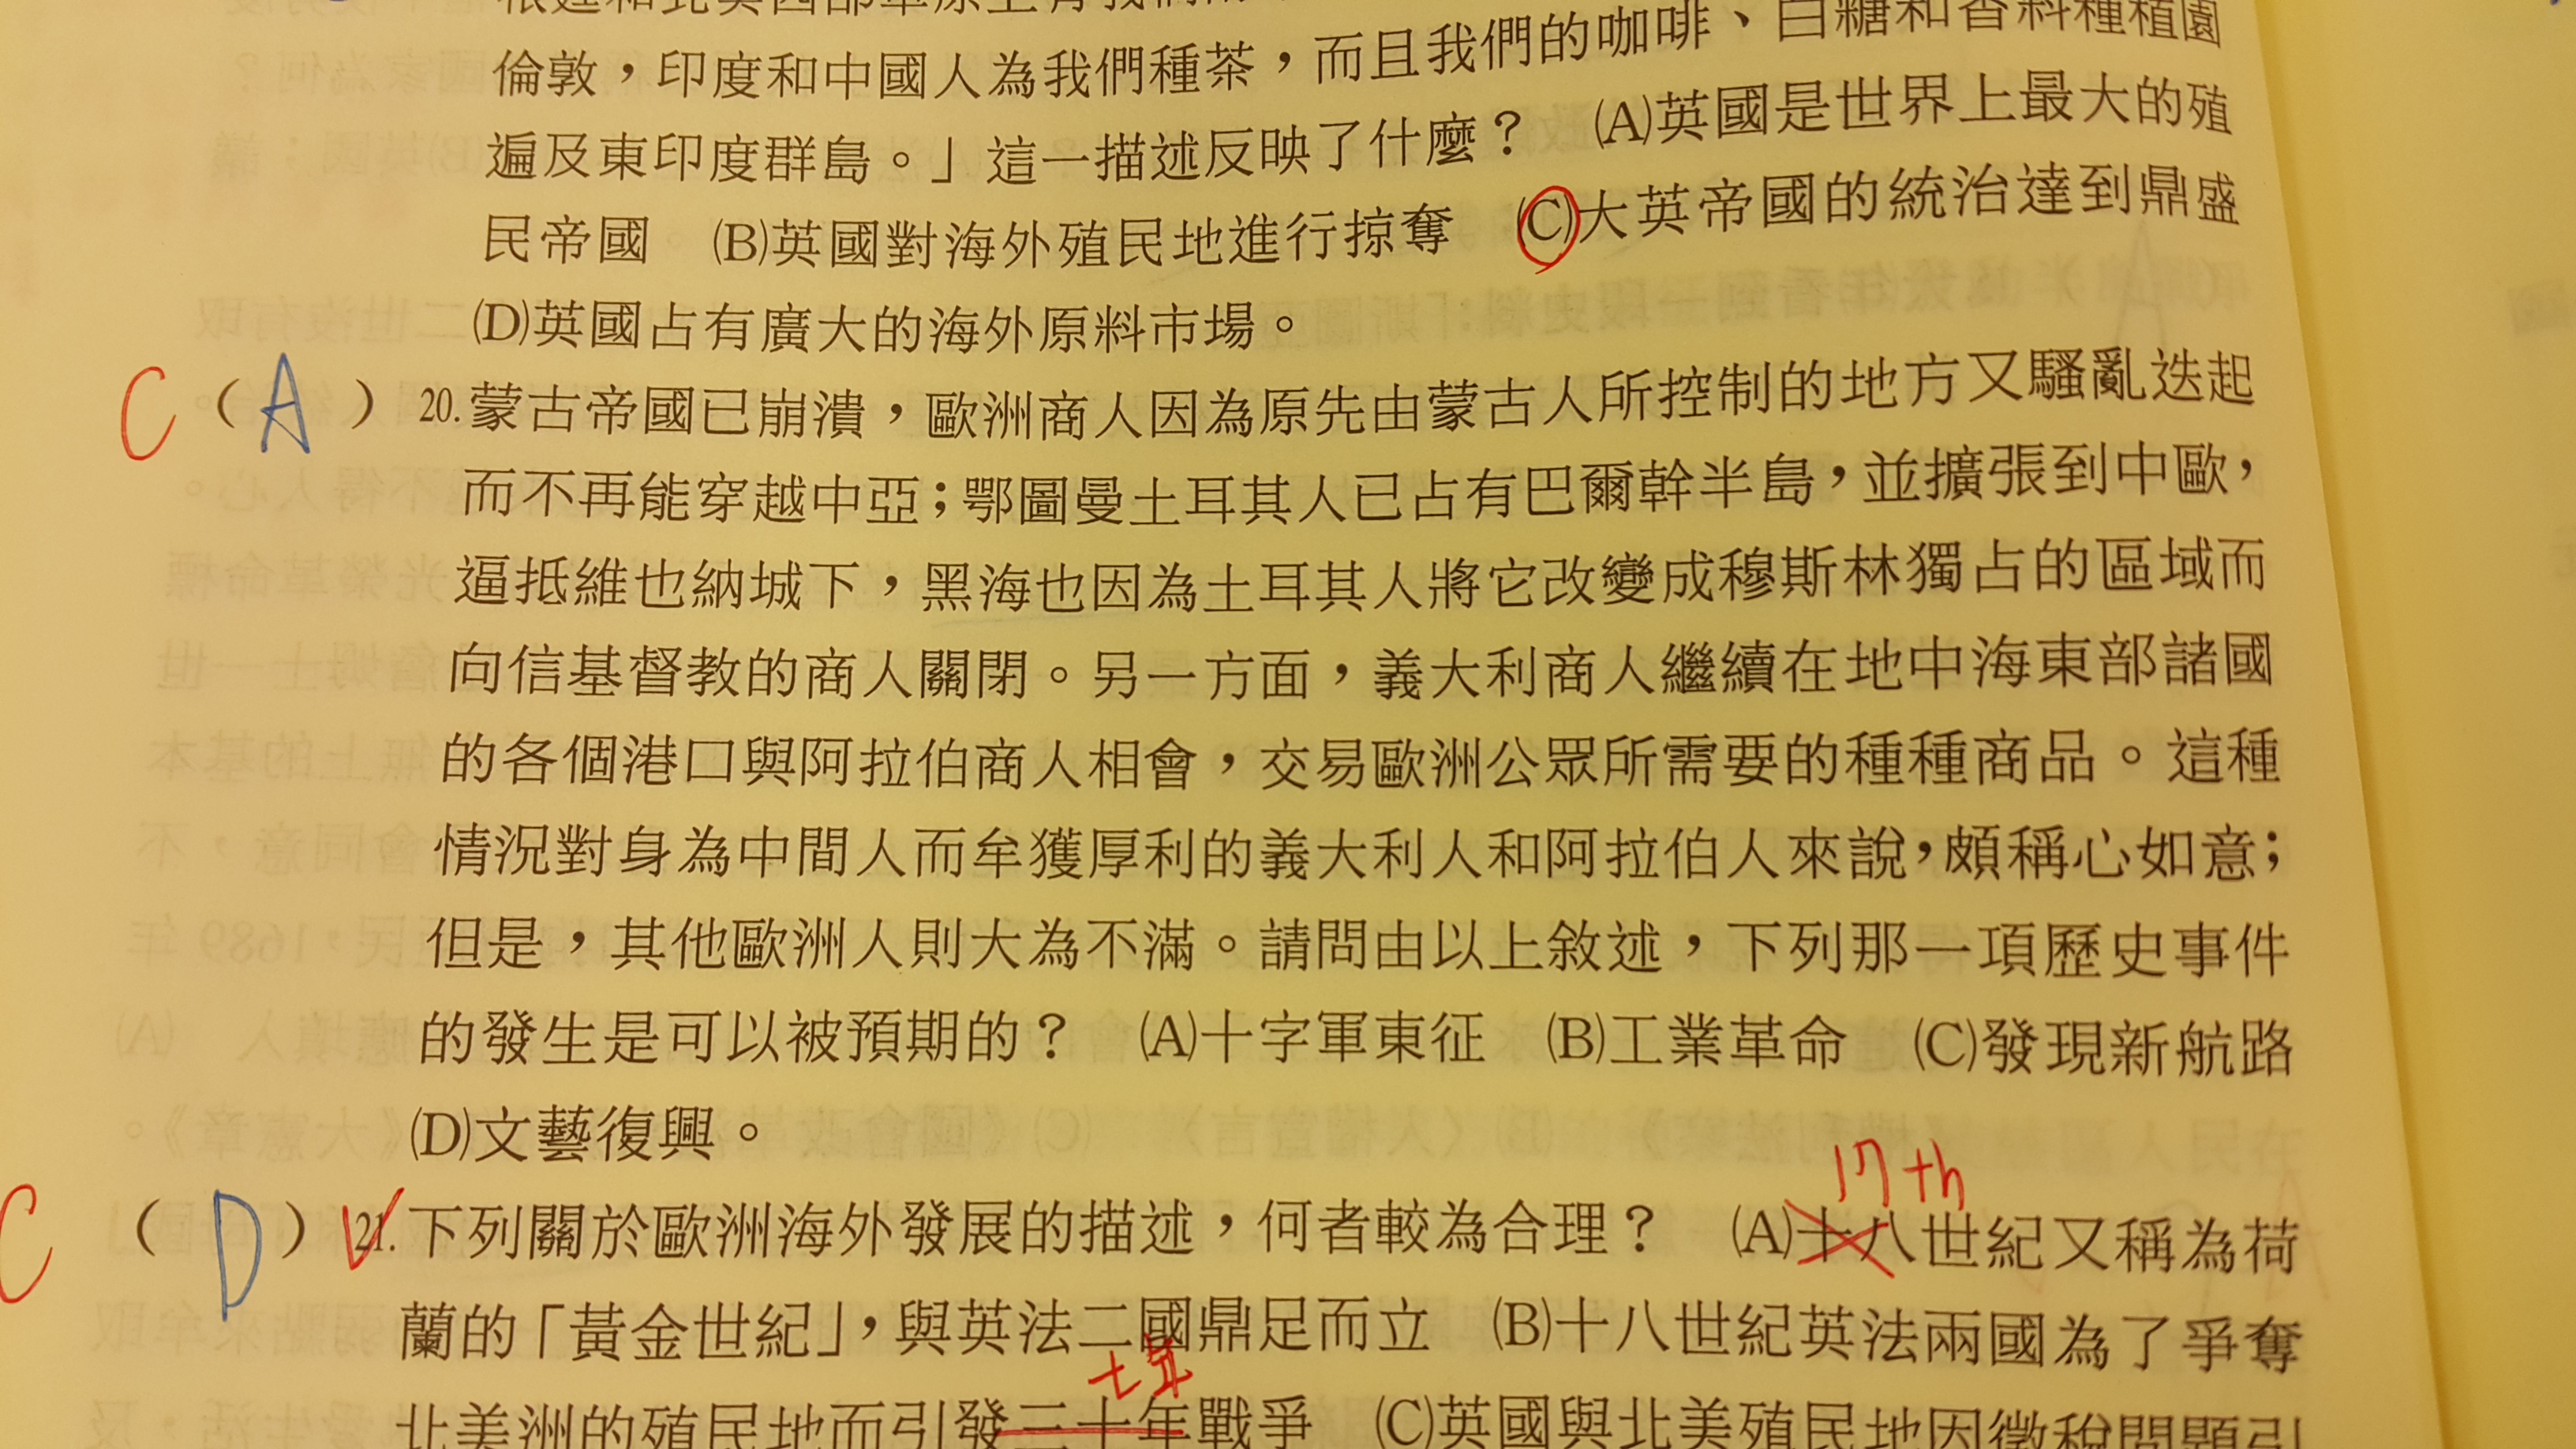 倫敦，印度和中國人為我們種茶，而且我們的咖啡、白糖和香料種植園
遍及東印度群島。」這一描述反映了什麼？ (A)英國是世界上最大的殖
民帝國 (B)英國對海外殖民地進行掠奪 (C)大英帝國的統治達到鼎盛
(D)英國占有廣大的海外原料市場。
C（A）20.蒙古帝國已崩潰，歐洲商人因為原先由蒙古人所控制的地方又騷亂迭起
而不再能穿越中亞；鄂圖曼土耳其人已占有巴爾幹半島，並擴張到中歐，
逼抵維也納城下，黑海也因為土耳其人將它改變成穆斯林獨占的區域而
向信基督教的商人關閉。另一方面，義大利商人繼續在地中海東部諸國
的各個港口與阿拉伯商人相會，交易歐洲公眾所需要的種種商品。這種
情況對身為中間人而牟獲厚利的義大利人和阿拉伯人來說，頗稱心如意；
但是，其他歐洲人則大為不滿。請問由以上敘述，下列那一項歷史事件
的發生是可以被預期的？ (A)十字軍東征 (B)工業革命 (C)發現新航路
(D)文藝復興。
17th
C（D）21.下列關於歐洲海外發展的描述，何者較為合理？ (A)十八世紀又稱為荷
蘭的「黃金世紀」，與英法二國鼎足而立 (B)十八世紀英法兩國為了爭奪
七年
北美洲的殖民地而引發三十年戰爭 (C)英國與北美殖民地因徵稅問題引